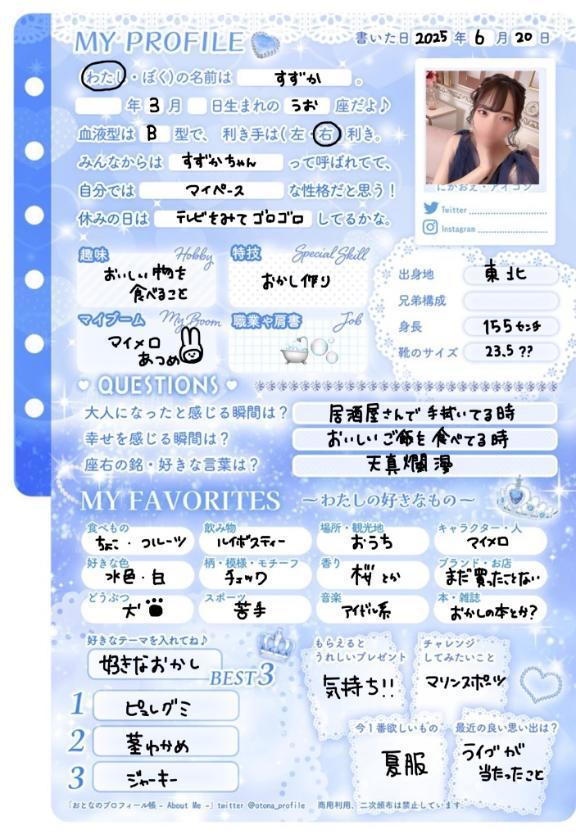 MY PROFILE
書いた日 2025 年 6 月 20 日
(わたし・ぼく)の名前は すずか 。
年 3 月 日生まれの うお 座だよ♪
血液型は B 型で、 利き手は(左・右)利き。
みんなからは すずかちゃん って呼ばれてて、
自分では マイペース な性格だと思う!
休みの日は テレビをみてゴロゴロ してるかな。
にがおえ・アイコン
Twitter
Instagram
趣味 Hobby
おいしい物を
食べること
特技 Special Skill
おかし作り
マイブーム My Boom
マイメロ
あつめ
職業や肩書 Job
出身地 東北
兄弟構成
身長 155センチ
靴のサイズ 23.5 ??
QUESTIONS
大人になったと感じる瞬間は? 居酒屋さんで手拭いてる時
幸せを感じる瞬間は? おいしいご飯を食べてる時
座右の銘・好きな言葉は? 天真爛漫
MY FAVORITES ~わたしの好きなもの~
食べもの ちょこ・フルーツ
飲み物 ルイボスティー
場所・観光地 おうち
キャラクター・人 マイメロ
好きな色 水色・白
柄・模様・モチーフ チェック
香り 桜とか
ブランド・お店 まだ買ったことない
どうぶつ 犬
スポーツ 苦手
音楽 アイドル系
本・雑誌 おかしの本とか?
好きなテーマを入れてね♪
好きなおかし BEST3
1 ピュレグミ
2 茎わかめ
3 ジャーキー
もらえると
うれしいプレゼント
気持ち!!
チャレンジ
してみたいこと
マリンスポーツ
今1番欲しいもの
夏服
最近の良い思い出は?
ライブが
当たったこと
「おとなのプロフィール帳 - About Me -」twitter @otona_profile 商用利用、二次頒布は禁止しています。